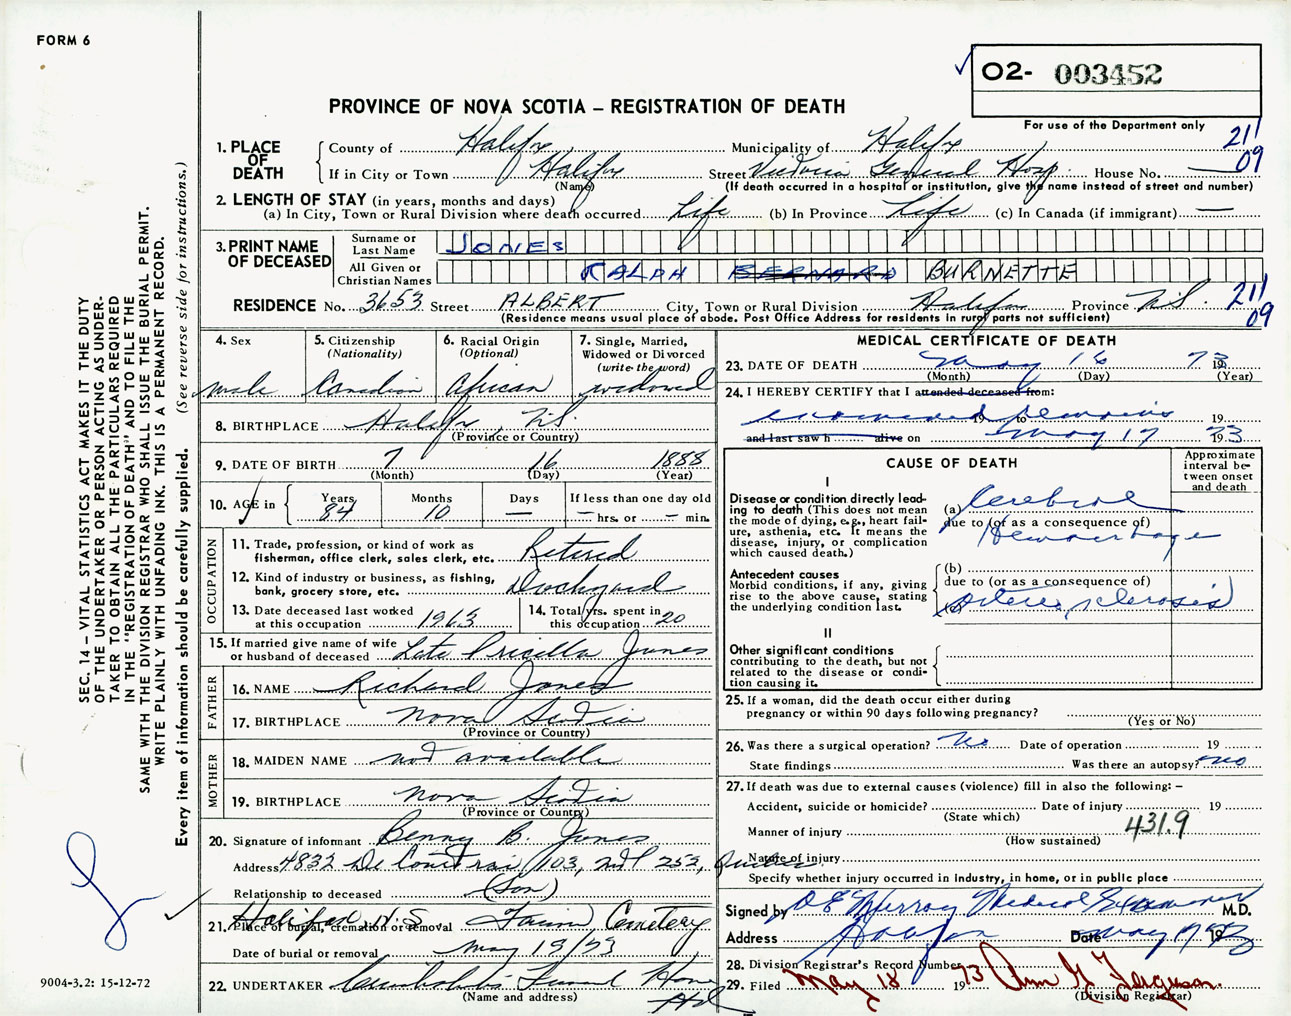 FORM 6
O2- 003452
PROVINCE OF NOVA SCOTIA – REGISTRATION OF DEATH
For use of the Department only
21/09
1. PLACE OF DEATH
County of Halifx Municipality of Halifx
If in City or Town Halifx Street Victoria General Hosp. House No. —
(Name) (If death occurred in a hospital or institution, give the name instead of street and number)
2. LENGTH OF STAY (in years, months and days)
(a) In City, Town or Rural Division where death occurred Life (b) In Province Life (c) In Canada (if immigrant) —
3. PRINT NAME OF DECEASED
Surname or Last Name JONES
All Given or Christian Names RALPH BERNARD BURNETTE
RESIDENCE No. 3653 Street ALBERT City, Town or Rural Division Halifax Province N.S.
21/09
(Residence means usual place of abode. Post Office Address for residents in rural parts not sufficient)
4. Sex
male
5. Citizenship
(Nationality)
Canadian
6. Racial Origin
(Optional)
African
7. Single, Married, Widowed or Divorced
(write the word)
widowed
8. BIRTHPLACE Halifx N.S.
(Province or Country)
9. DATE OF BIRTH 7 16 1888
(Month) (Day) (Year)
10. AGE in
Years 84
Months 10
Days —
If less than one day old
— hrs. or — min.
OCCUPATION
11. Trade, profession, or kind of work as fisherman, office clerk, sales clerk, etc. Retired
12. Kind of industry or business, as fishing, bank, grocery store, etc. Dockyard
13. Date deceased last worked at this occupation 1963
14. Total yrs. spent in this occupation 20
15. If married give name of wife or husband of deceased Late Pricilla Jones
FATHER
16. NAME Richard Jones
17. BIRTHPLACE Nova Scotia
(Province or Country)
MOTHER
18. MAIDEN NAME not available
19. BIRTHPLACE Nova Scotia
(Province or Country)
20. Signature of informant Benny B. Jones
Address 4832 De Courtrai, 103, Mtl 252, Quebec.
Relationship to deceased (Son)
21. Place of burial, cremation or removal Halifax N.S. Cemetery
Date of burial or removal May 19/73
22. UNDERTAKER Funeral Home
(Name and address)
MEDICAL CERTIFICATE OF DEATH
23. DATE OF DEATH May 16 1973
(Month) (Day) (Year)
24. I HEREBY CERTIFY that I attended deceased from:
examined remains 19 to 19
and last saw h alive on May 17 1973
CAUSE OF DEATH
Approximate interval between onset and death
I
Disease or condition directly leading to death (This does not mean the mode of dying, e.g., heart failure, asthenia, etc. It means the disease, injury, or complication which caused death.)
(a) Cerebral
due to (or as a consequence of)
Hemorrhage
Antecedent causes
Morbid conditions, if any, giving rise to the above cause, stating the underlying condition last.
(b)
due to (or as a consequence of)
(c) Arteriosclerosis
II
Other significant conditions contributing to the death, but not related to the disease or condition causing it.
25. If a woman, did the death occur either during pregnancy or within 90 days following pregnancy?
(Yes or No)
26. Was there a surgical operation? No Date of operation 19
State findings Was there an autopsy? No
27. If death was due to external causes (violence) fill in also the following: –
Accident, suicide or homicide? Date of injury 19
(State which)
431.9
Manner of injury
(How sustained)
Nature of injury
Specify whether injury occurred in industry, in home, or in public place
Signed by D E Murray Medical Examiner M.D.
Address Halifax Date May 17 1973
28. Division Registrar's Record Number
29. Filed May 18 1973 Ann G. Ferguson.
(Division Registrar)
SEC. 14 – VITAL STATISTICS ACT MAKES IT THE DUTY
OF THE UNDERTAKER OR PERSON ACTING AS UNDERTAKER
TO OBTAIN ALL THE PARTICULARS REQUIRED
IN THE "REGISTRATION OF DEATH" AND TO FILE THE
SAME WITH THE DIVISION REGISTRAR WHO SHALL ISSUE THE BURIAL PERMIT.
WRITE PLAINLY WITH UNFADING INK. THIS IS A PERMANENT RECORD.
Every item of information should be carefully supplied. (See reverse side for instructions.)
9004-3.2: 15-12-72